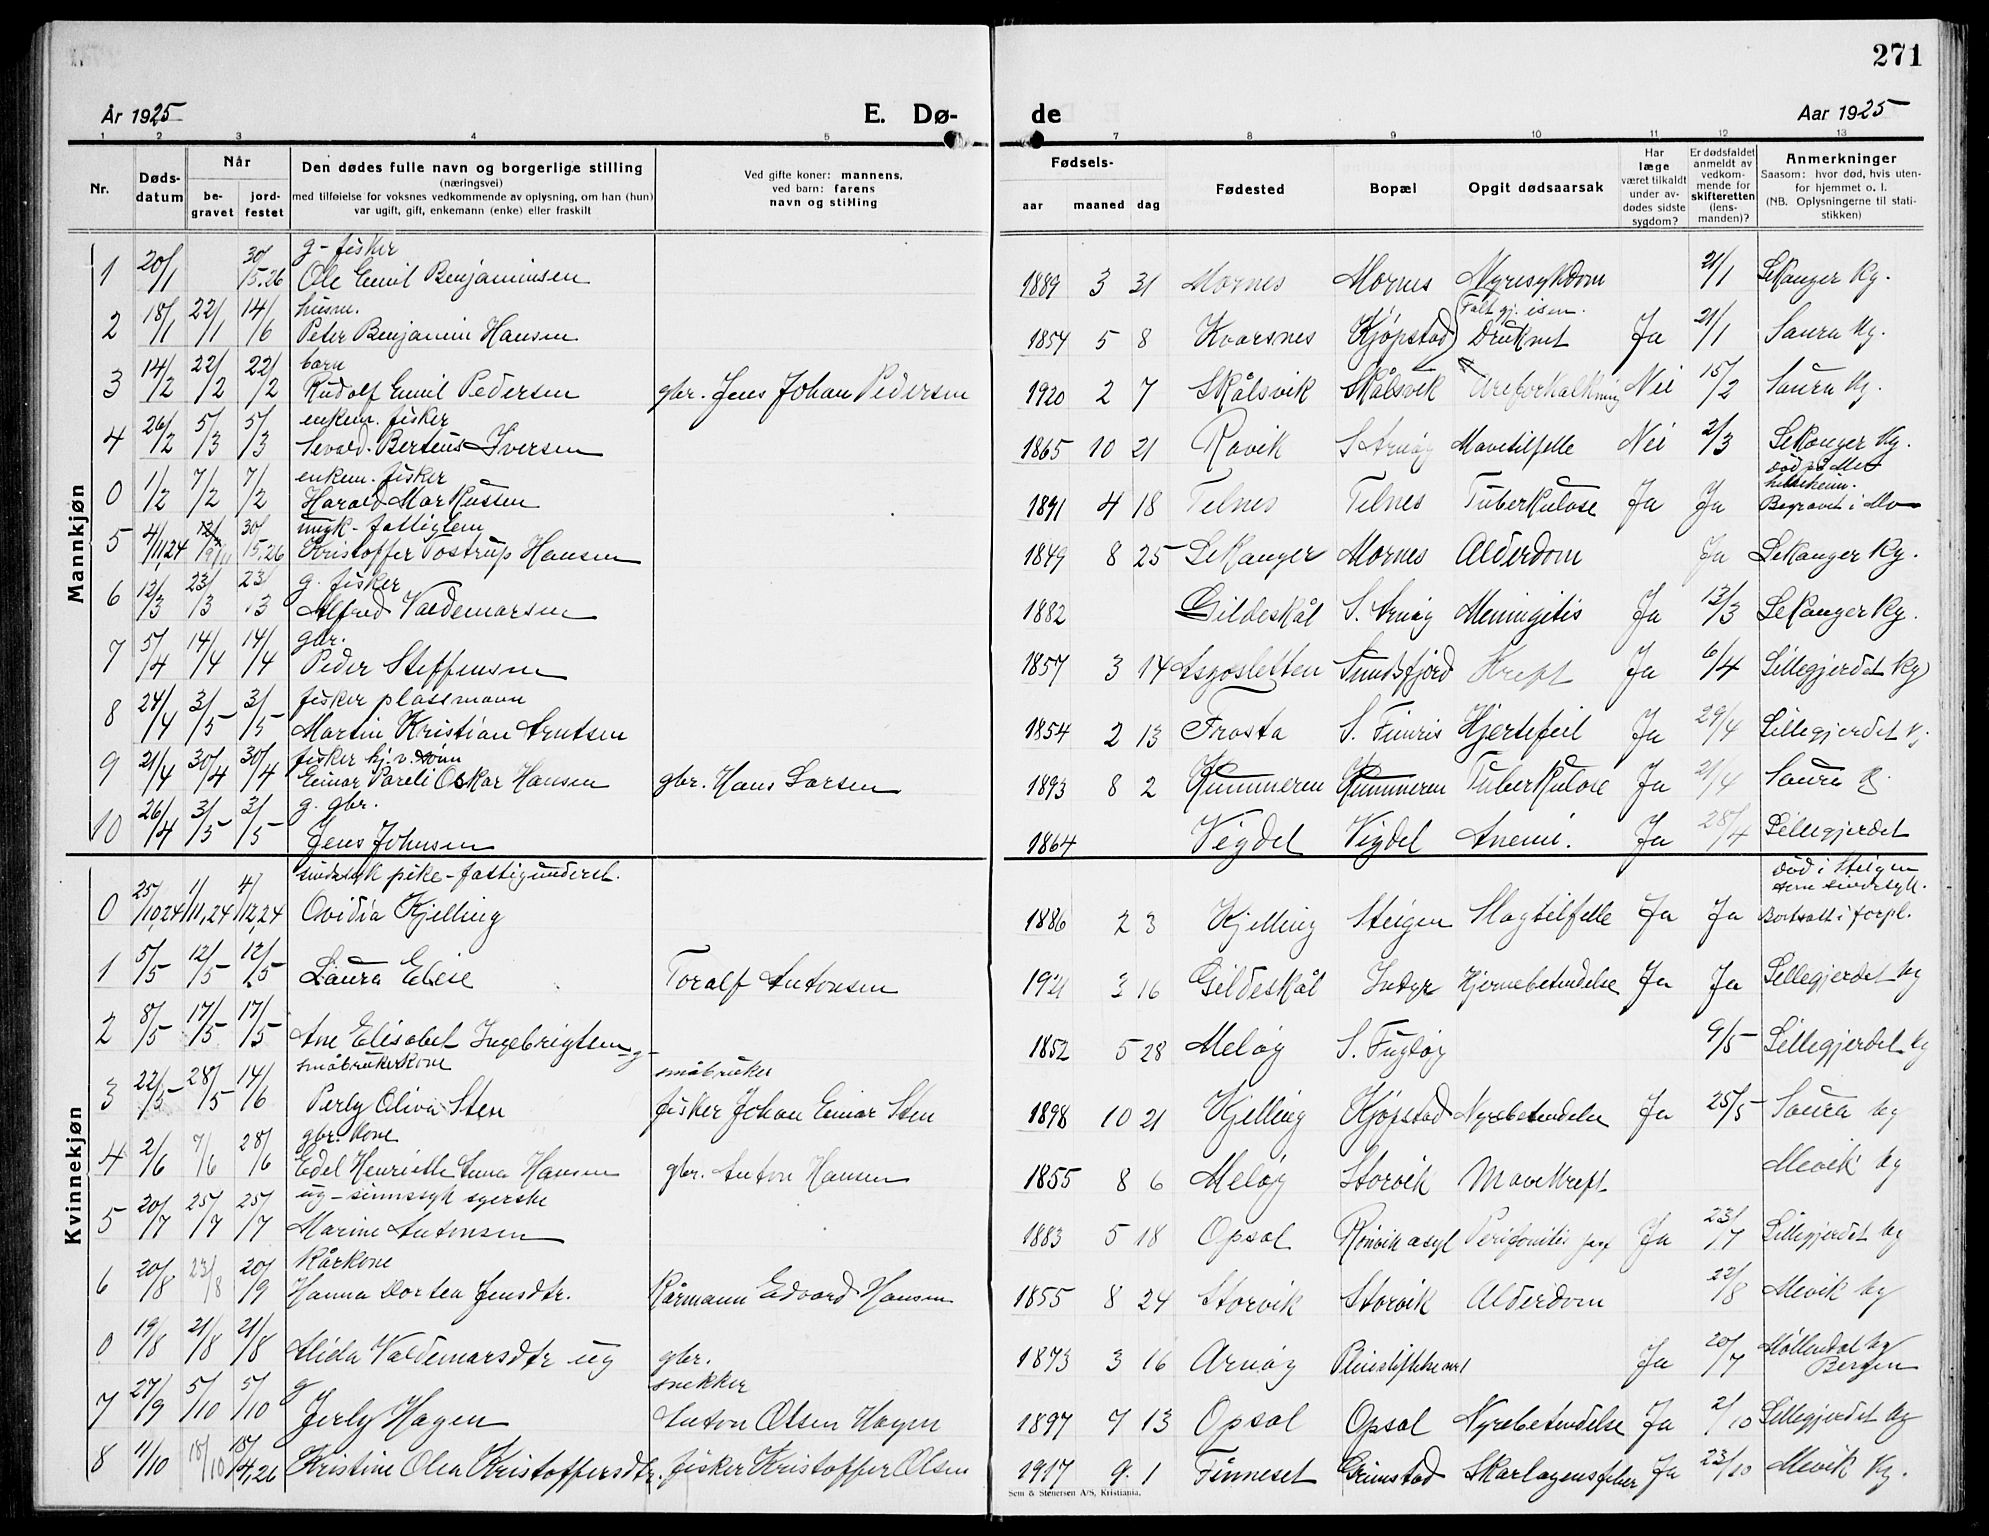 271
År 1925 E. Dø- de Aar 1925
1 2 3 4 5 7 8 9 10 11 12 13
Nr. Døds-datum Når be-gravet jord-festet Den dødes fulle navn og borgerlige stilling (næringsvei) med tilføielse for voksnes vedkommende av oplysning, om han (hun) var ugift, gift, enkemann (enke) eller fraskilt Ved gifte koner: mannens, ved barn: farens navn og stilling Fødsels- aar maaned dag Fødested Bopæl Opgit dødsaarsak Har læge været tilkaldt under av-dødes sidste sygdom? Er dødsfaldet anmeldt av vedkom-mende for skifteretten (lens-manden)? Anmerkninger Saasom: hvor død, hvis uten-for hjemmet o. l. (NB. Oplysningerne til stati-stikken)
Mannkjøn
g - fisker
1 20/1 30/15.26 Ole Emil Benjaminsen 1889 3 31 Mornes Mornes Nyresykdom 21/1 Lekanger kg.
husm. Falt gj. isen.
2 18/1 22/1 14/6 Peter Benjamin Hansen 1854 5 8 Kvarsnes Kjøpstad Druknet Ja 21/1 Saura kg.
barn
3 14/2 22/2 22/2 Rudolf Emil Pedersen gbr. Jens Johan Pedersen 1920 2 7 Skålsvik Skålsvik Areforkalkning Nei 15/2 Saura kg.
enkem. fisker
4 26/2 5/3 5/3 Sevald Berteus Iversen 1865 10 21 Ravik S Arnøy Mavetilfelle Nei 2/3 Lekanger kg.
enkem. fisker død på
0 1/2 7/2 7/2 Harald Markussen 1891 4 18 Telnes Telnes Tuberkulose Ja Ja Begravet i Mo
ungk - fattiglem
5 4/11.24 30/15.26 Kristoffer Tostrup Hansen 1849 8 25 Lekanger Mornes Alderdom Ja Lekanger kg.
g. fisker
6 12/3 23/3 23/3 Alfred Valdemarsen 1882 Gildeskål S. Arnøy Meningitis Ja 13/3 Lekanger kg.
gbr.
7 5/4 14/4 14/4 Peder Steffensen 1857 3 14 Sundsfjord Kreft Ja 6/4 Lillegjerdet kg
fisker plassmann
8 24/4 3/5 3/5 Martin Kristian Arntsen 1854 2 13 Frosta S. Finnis Hjertefeil Ja 29/4 Lillegjerdet kg
fisker hj. v. sønn
9 21/4 30/4 30/4 Einar Pareli Oskar Hansen gbr. Hans Larsen 1893 8 2 Kummeren Kummeren Tuberkulose Ja 21/4 Saura kg
g. gbr.
10 26/4 3/5 3/5 Jens Johnsen 1864 Vegdel Vegdel Anemi. Ja 28/4 Lillegjerdet
Kvinnekjøn
sindssyk pike - fattigunderst. død i Steigen som sindssyk.
0 25/10,24 1/11,24 4/12,24 Ovidia Kjelling 1886 2 3 Kjelling Steigen Slagtilfelle Ja Ja Bortsatt i forpl.
1 5/5 12/5 12/5 Laura Elise Toralf Antonsen 1921 3 16 Gildeskål Indyr Hjernebetendelse Ja Ja Lillegjerdet kg
2 8/5 17/5 17/5 Ane Elisabet Ingebrigtsen - g - 1852 5 28 Meløy S. Fugløy 9/5 Lillegjerdet kg
småbrukerkone småbruker
3 22/5 28/5 14/6 Perly Oliva Sten fisker Johan Einar Sten 1898 10 21 Kjelling Kjøpstad Nyrebetendelse Ja 25/5 Saura kg
gbr. kone
4 2/6 7/6 28/6 Edel Henriette Anna Hansen gbr. Anton Hansen 1855 8 6 Meløy Storvik Mavekreft Mevik kg
ug - sinnssyk syerske
5 20/7 25/7 25/7 Marine Antonsen 1883 5 18 Opsal Rønvik asyl Peritonitis perf Ja 23/7 Lillegjerdet kg
Kårkone
6 20/8 23/8 20/9 Hanna Dortea Jensdtr. Kårmann Edvard Hansen 1855 8 24 Storvik Storvik Alderdom 22/8 Mevik kg
0 19/8 21/8 21/8 Alida Valdemarsdtr ug gbr. 1873 3 16 Arnøy Pleiestiftelse nr 1 Ja 20/7 Møllendal kg Bergen
g snekker
7 27/9 5/10 5/10 Jerly Hagen Anton Olsen Hagen 1897 7 13 Opsal Opsal Nyrebetendelse Ja 2/10 Lillegjerdet kg
8 11/10 18/10 15/4,26 Kristine Olea Kristoffersdtr. fisker Kristoffer Olsen 1917 9 1 Finneset Grimstad Skarlagensfeber Ja 23/10 Mevik kg.
Sem & Stenersen A/S, Kristiania.